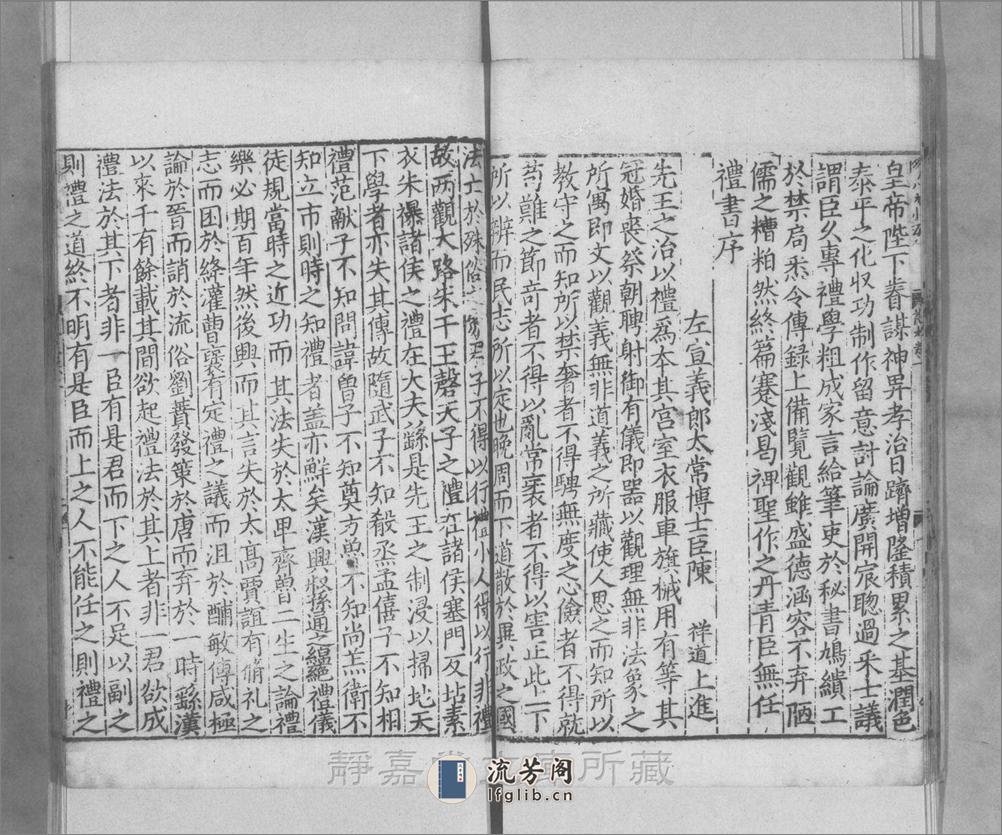 皇帝陛下眷謀神畀孝治日躋增隆積累之基潤色
泰平之化収功制作留意討論廣開宸聦過采士議
謂臣久專禮學粗成家言給筆吏於秘書鳩繢工
於禁局悉令傳録上備覧觀雖盛德涵容不弃陋
儒之糟粕然終篇蹇淺曷裨聖作之丹青臣無任
禮書序
左宣義郎太常博士臣陳祥道上進
先王之治以禮爲本其宫室衣服車旗械用有等其
冠婚喪祭朝聘射御有儀即器以觀理無非法象之
所寓即文以觀義無非道義之所藏使人思之而知所以
教守之而知所以禁奢者不得騁無度之心儉者不得就
苟難之節竒者不得以亂常衺者不得以害正此上下
所以辨而民志所以定也晚周而下道散於異政之國
法亡於殊俗之君子不得以行禮小人得以行非禮
故两觀大路朱干玉磬天子之禮在諸侯塞門反坫素
衣朱襮諸侯之禮在大夫繇是先王之制浸以掃地天
下學者亦失其傳故隨武子不知殺烝孟僖子不知相
禮范獻子不知問諱曾子不知奠方魚不知尚羔衛不
知立市則時之知禮者盖亦鮮矣漢興叔孫通之緜禮儀
徒規當時之近功而其法失於太甲齊曾二生之論禮
樂必期百年然後興而其言失於太髙賈誼有脩礼之
志而困於絳灌曹襃有定禮之議而沮於酺敏傅咸極
論於晉而誚於流俗劉蕡發策於唐而弃於一時繇漢
以來千有餘載其間欲起禮法於其上者非一君欲成
禮法於其下者非一臣有是君而下之人不足以副之
則禮之道終不明有是臣而上之人不能任之則禮之
靜嘉堂文庫所藏
流芳阁
lfglib.cn